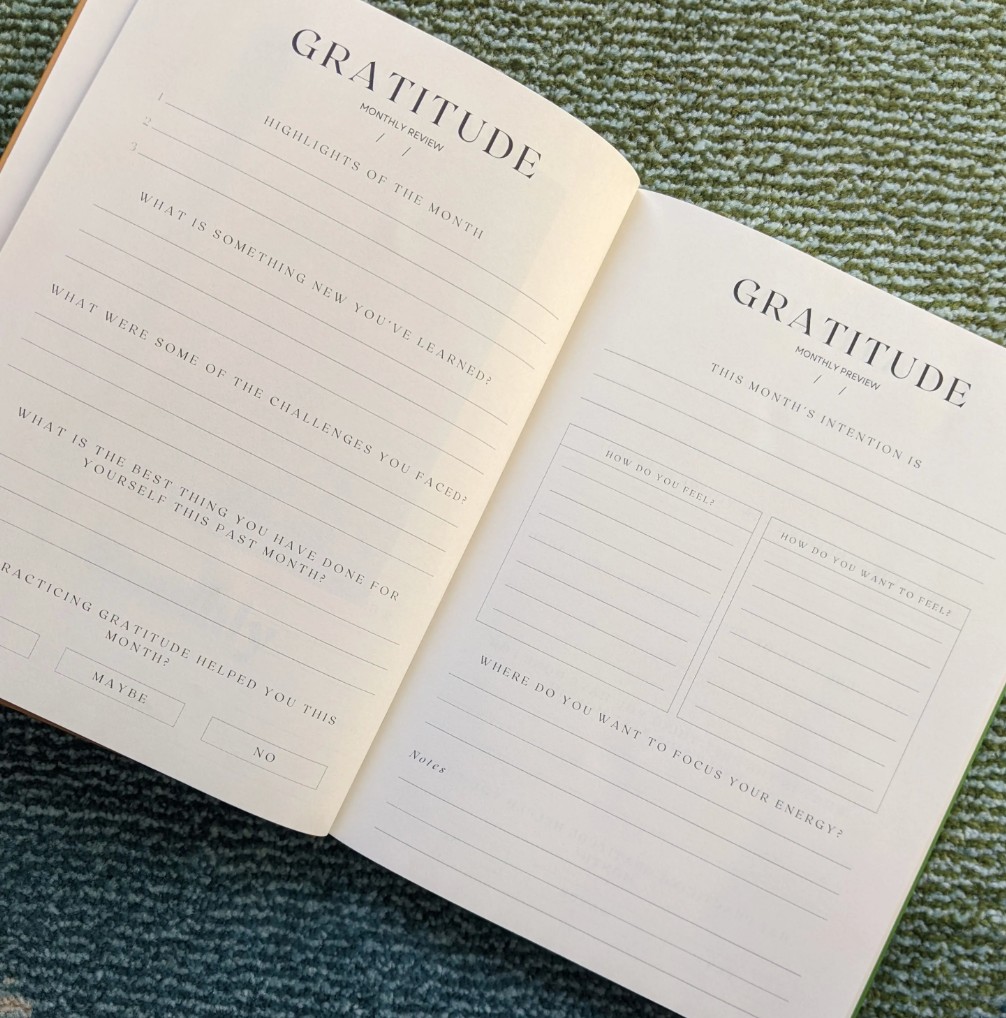 GRATITUDE
MONTHLY REVIEW
/ /
HIGHLIGHTS OF THE MONTH
1
2
3
WHAT IS SOMETHING NEW YOU'VE LEARNED?
WHAT WERE SOME OF THE CHALLENGES YOU FACED?
WHAT IS THE BEST THING YOU HAVE DONE FOR
YOURSELF THIS PAST MONTH?
GRATITUDE HELPED YOU THIS
MONTH?
MAYBE
NO
GRATITUDE
MONTHLY PREVIEW
/ /
THIS MONTH'S INTENTION IS
HOW DO YOU FEEL?
HOW DO YOU WANT TO FEEL?
WHERE DO YOU WANT TO FOCUS YOUR ENERGY?
Notes